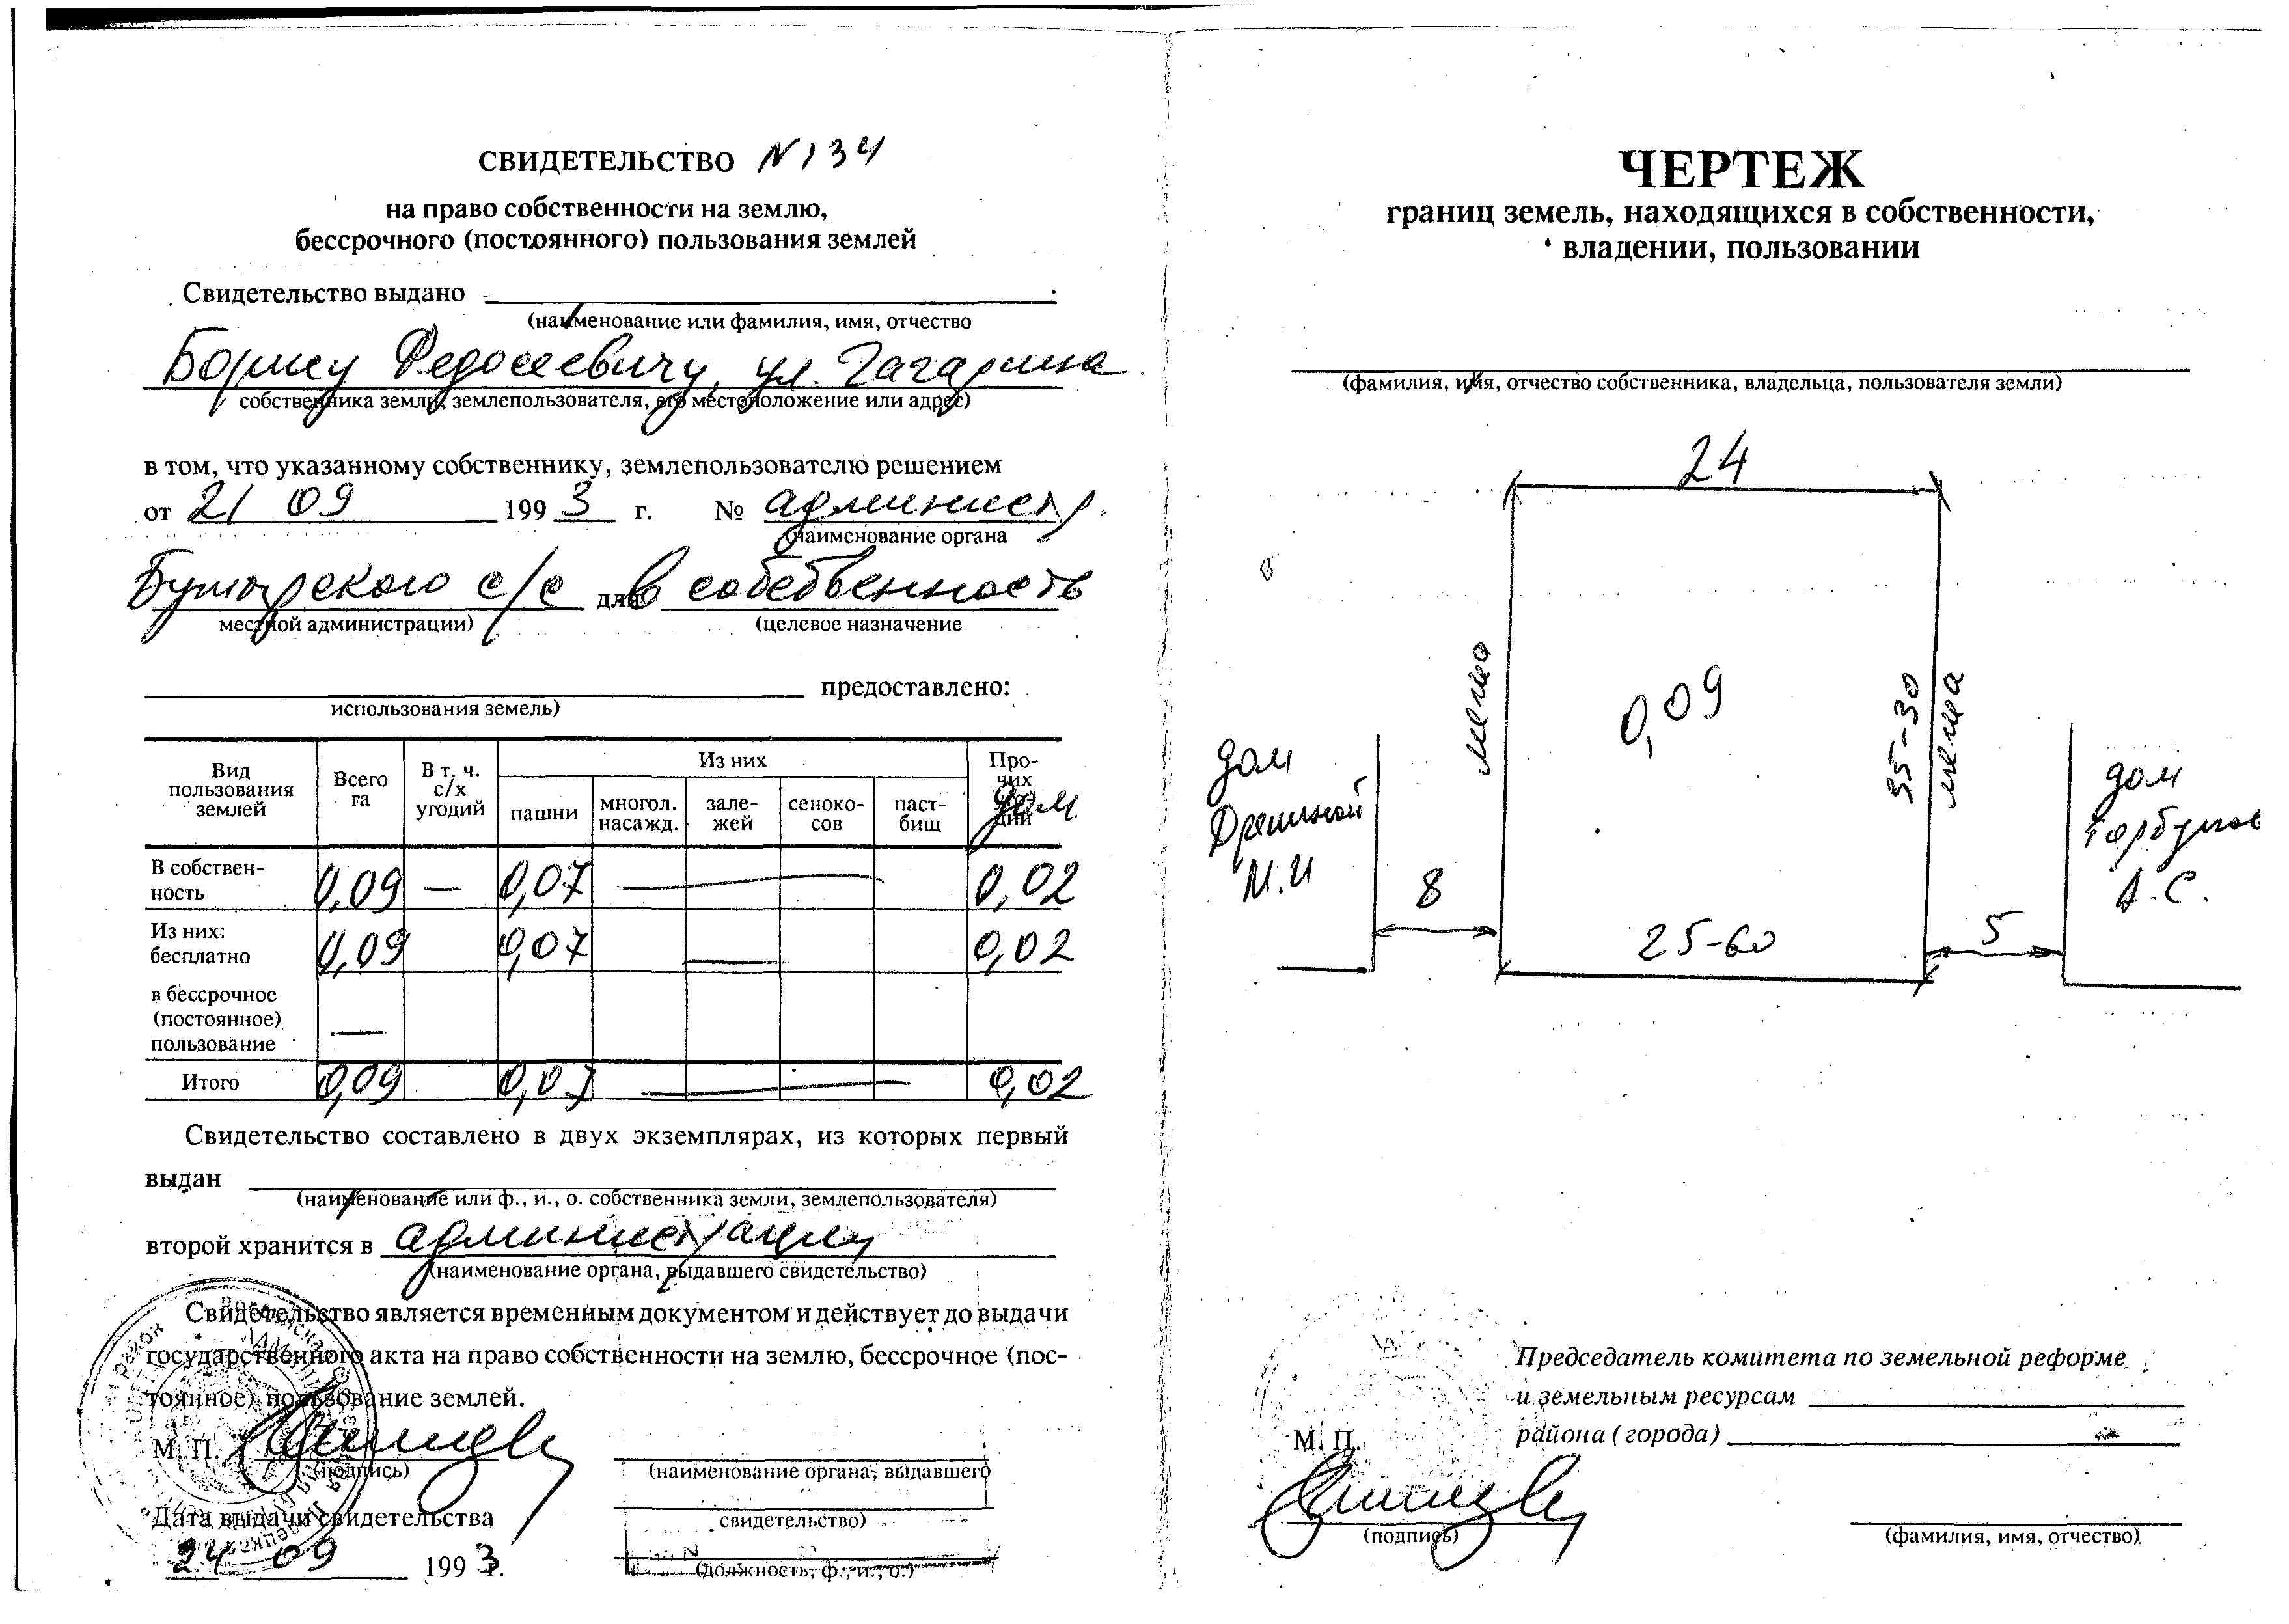 СВИДЕТЕЛЬСТВО N 134
на право собственности на землю,
бессрочного (постоянного) пользования землей
Свидетельство выдано
(наименование или фамилия, имя, отчество
Борису Федосеевичу, ул. Гагарина
собственника земли, землепользователя, его местоположение или адрес)
в том, что указанному собственнику, землепользователю решением
от 21 09 1993 г. № администр.
(наименование органа
с/с для в собственность
местной администрации) (целевое назначение
предоставлено:
использования земель)
Вид пользования землей
Всего га
В т. ч. с/х угодий
Из них
пашни
многол. насажд.
зале-жей
сеноко-сов
паст-бищ
Про-чих
дом
В собствен-ность 0,09 — 0,07 — 0,02
Из них: бесплатно 0,09 0,07 — 0,02
в бессрочное (постоянное) пользование —
Итого 0,09 0,07 — 0,02
Свидетельство составлено в двух экземплярах, из которых первый
выдан
(наименование или ф., и., о. собственника земли, землепользователя)
второй хранится в администрации
(наименование органа, выдавшего свидетельство)
Свидетельство является временным документом и действует до выдачи
государственного акта на право собственности на землю, бессрочное (пос-
тоянное) пользование землей.
М. П.
(подпись)
(наименование органа, выдавшего
свидетельство)
(должность, ф., и., о.)
Дата выдачи свидетельства
24 09 1993 г.
ЧЕРТЕЖ
границ земель, находящихся в собственности,
владении, пользовании
(фамилия, имя, отчество собственника, владельца, пользователя земли)
24
межа
0,09
35-30
межа
дом
М.И
8
25-60
5
дом
А.С.
Председатель комитета по земельной реформе
и земельным ресурсам
района (города)
М. П.
(подпись)
(фамилия, имя, отчество)